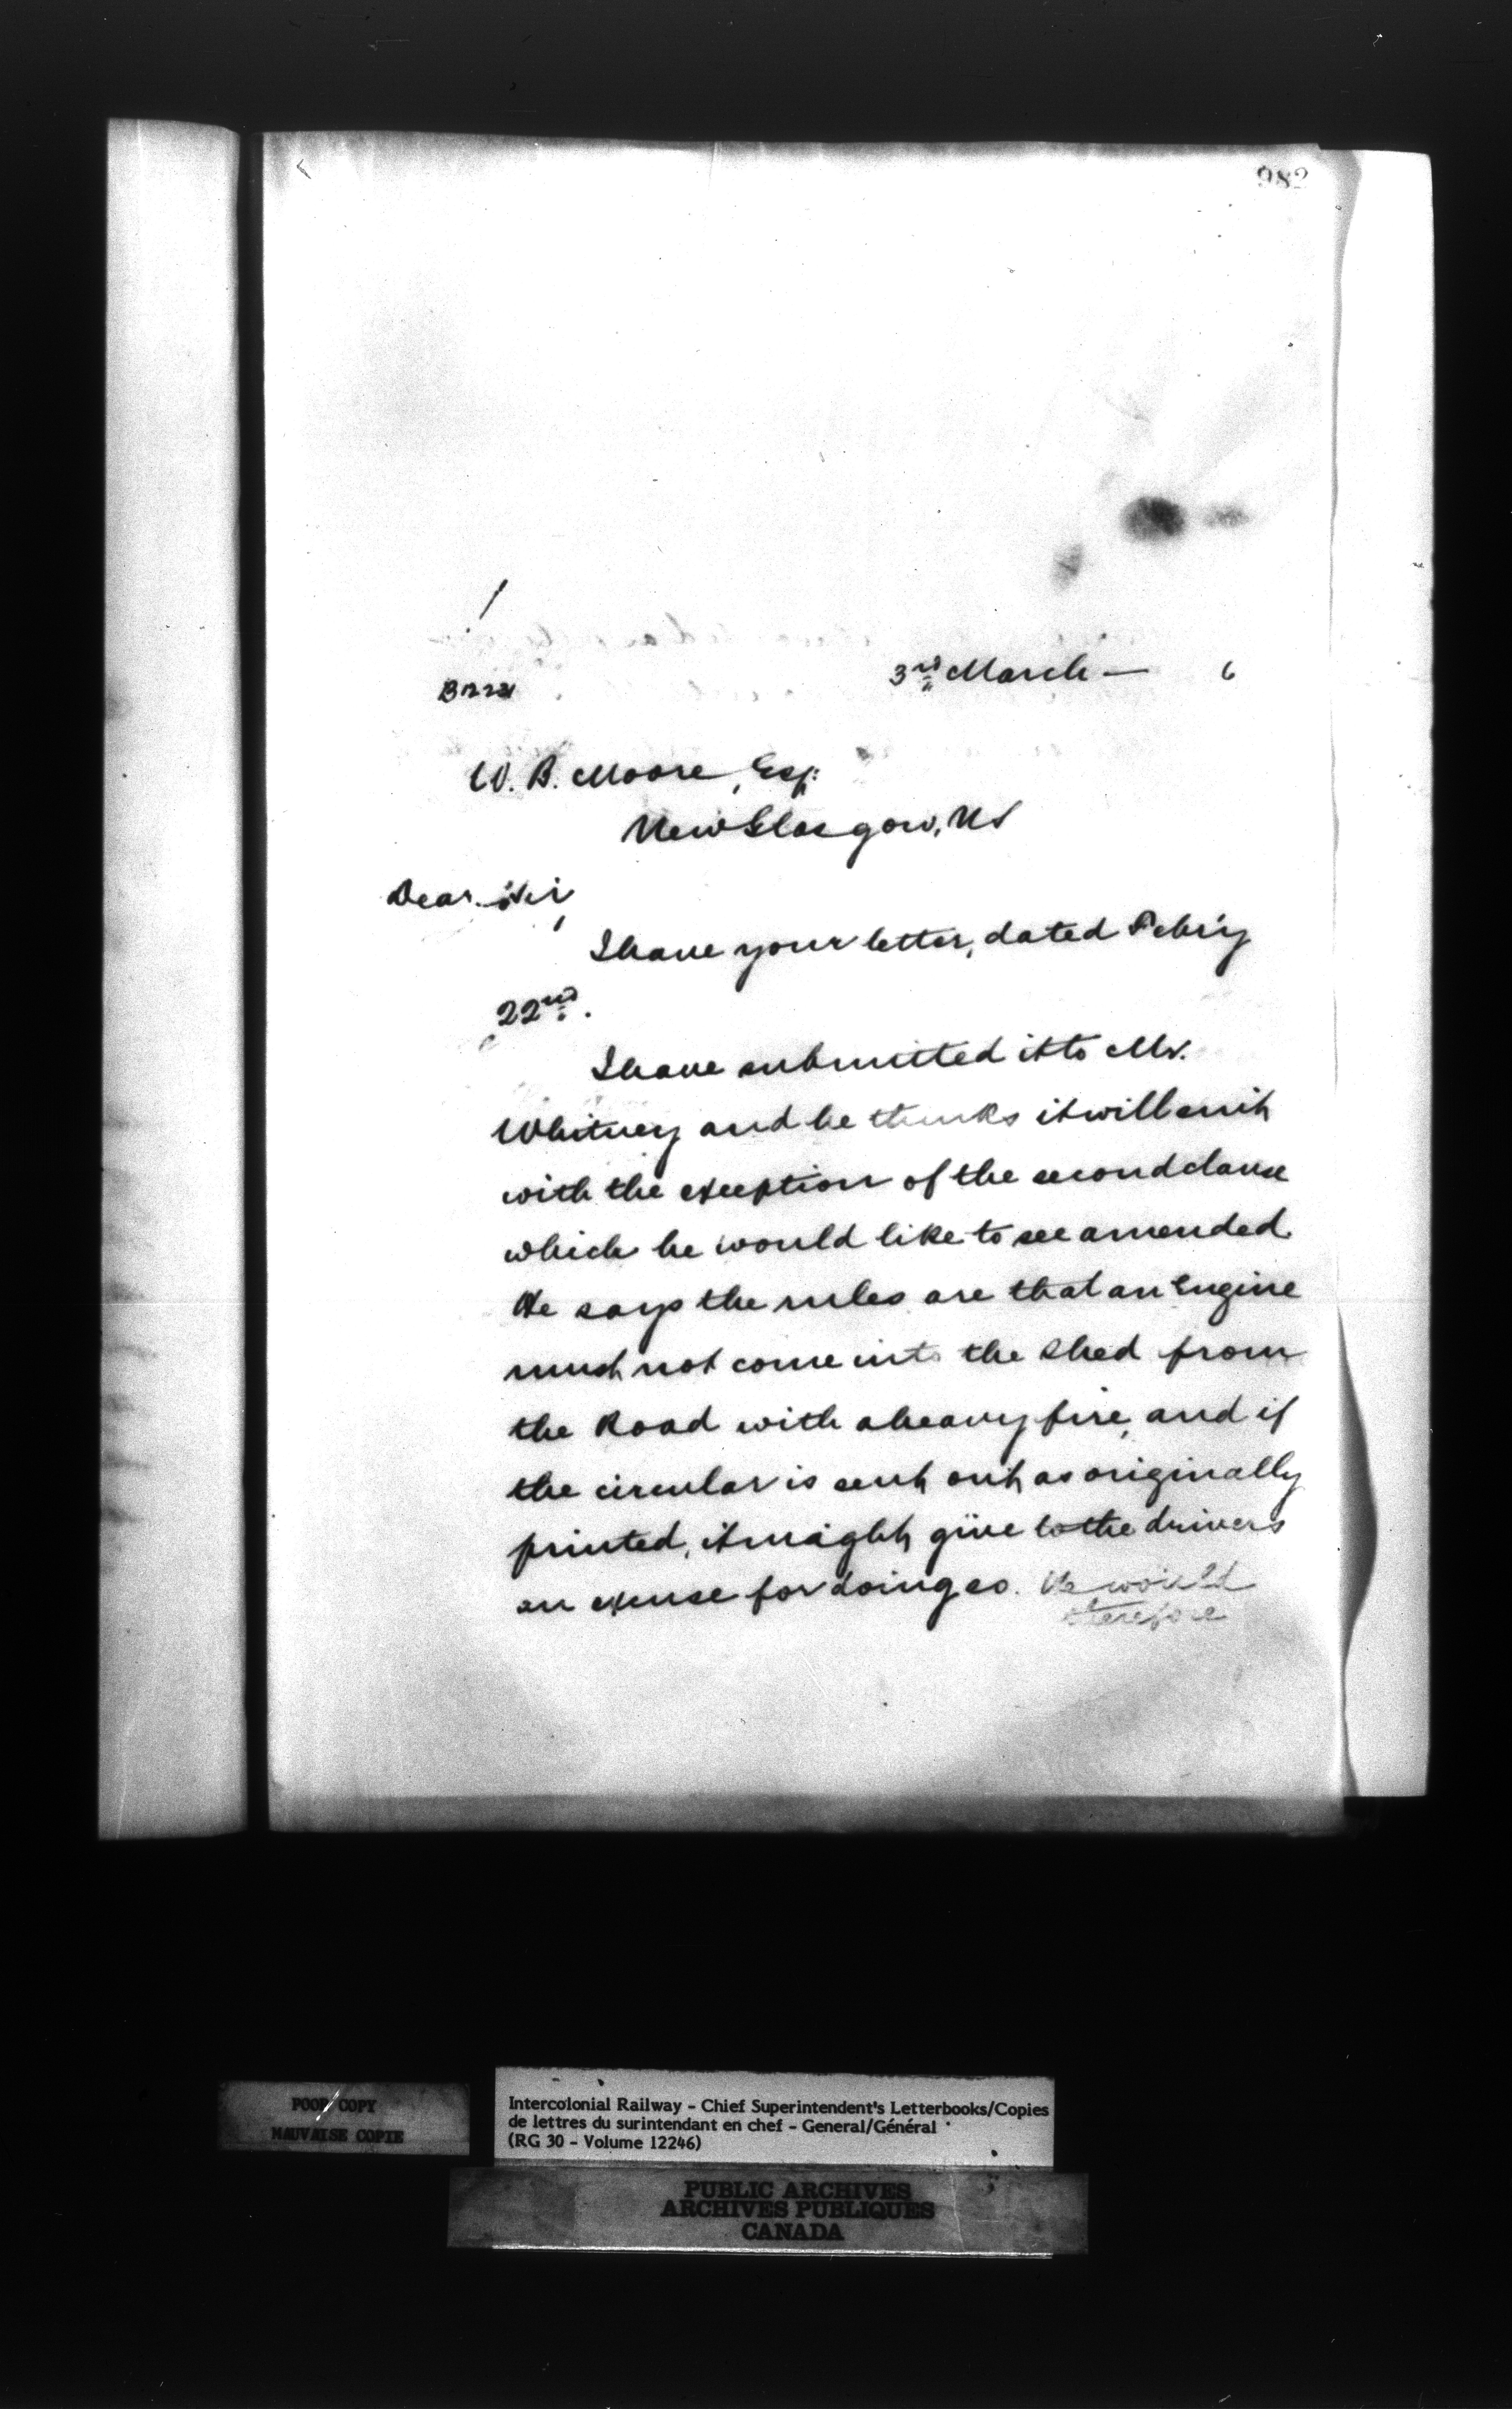 982
3rd March — 6
W. B. Moore, Esq:
New Glasgow, NS
Dear Sir,
I have your letter, dated Feb'y
22nd.
I have submitted it to Mr.
Whitney and he thinks it will suit
with the exception of the second clause
which he would like to see amended.
He says the rules are that an Engine
must not come into the Shed from
the Road with a heavy fire, and if
the circular is sent out as originally
printed, it might give to the drivers
an excuse for doing so. He would
therefore
POOR COPY
MAUVAISE COPIE
Intercolonial Railway - Chief Superintendent's Letterbooks/Copies
de lettres du surintendant en chef - General/Général
(RG 30 - Volume 12246)
PUBLIC ARCHIVES
ARCHIVES PUBLIQUES
CANADA